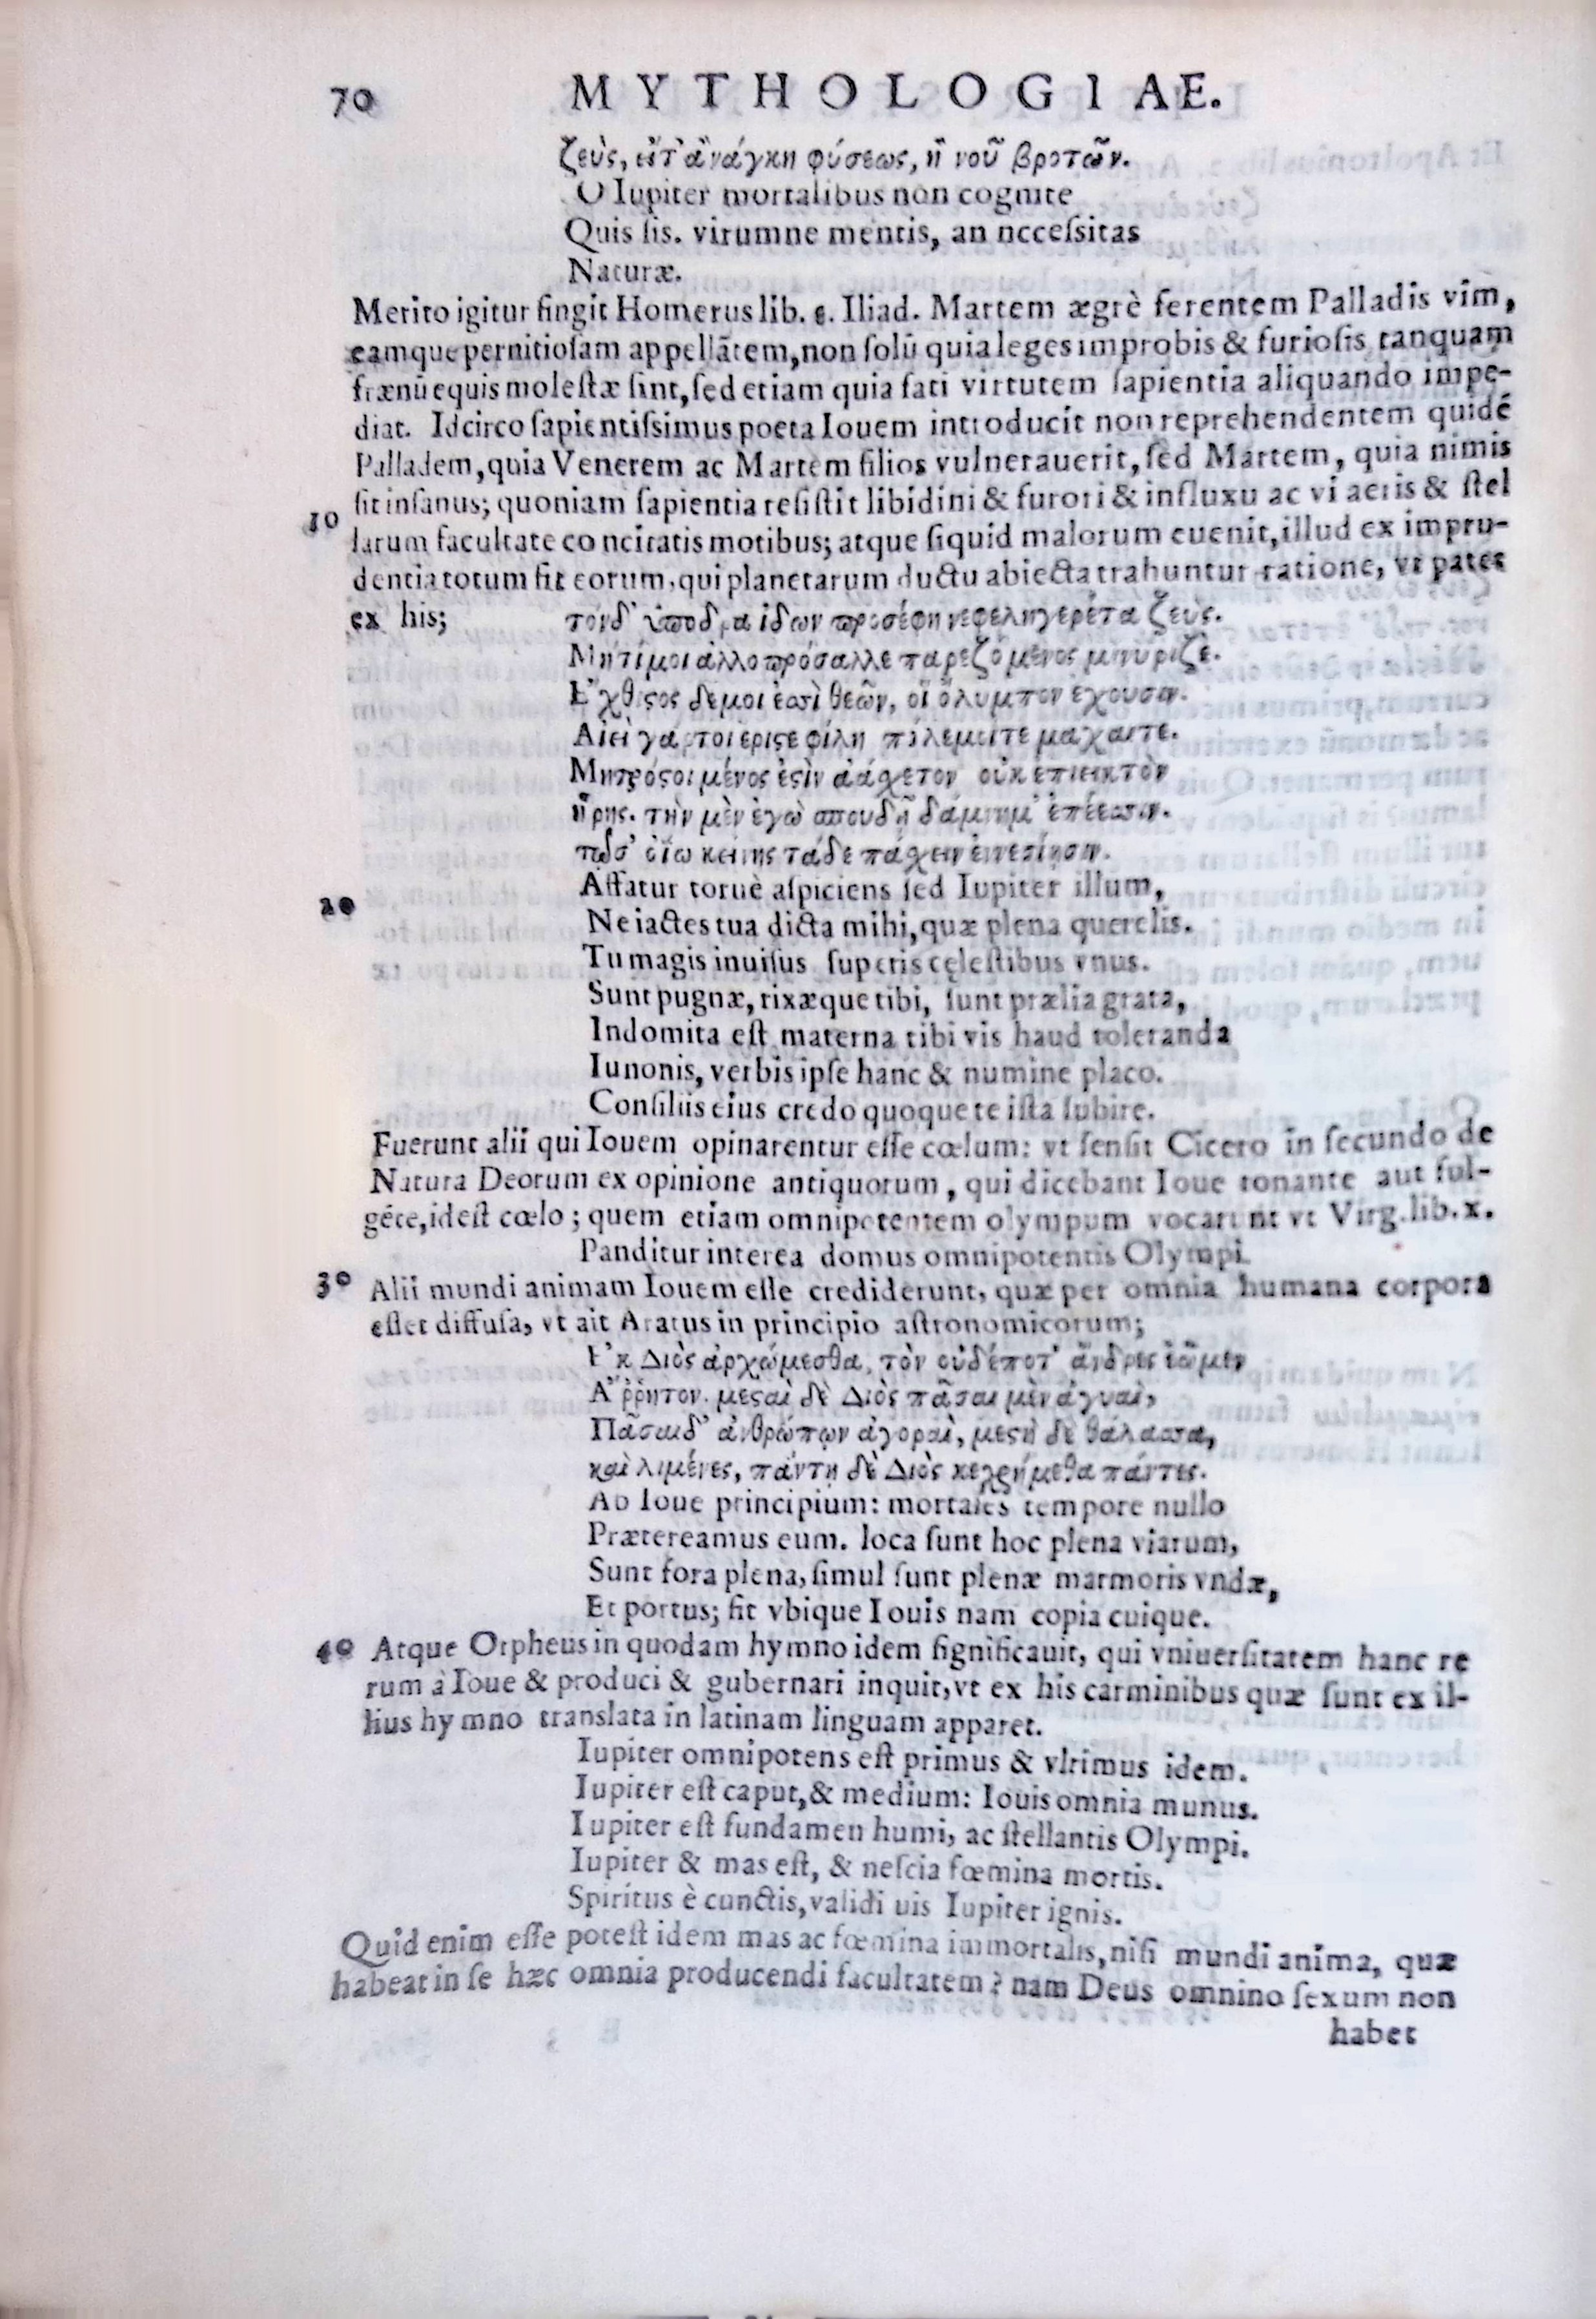 70 MYTHOLOGIAE.
ζεὺς, εἴτ' ἀνάγκη φύσεως, ἢ νοῦ βροτῶν.
O Iupiter mortalibus non cognite
Quis ſis. virumne mentis, an neceſsitas
Naturæ.
Merito igitur fingit Homerus lib. ε. Iliad. Martem ægrè ferentem Palladis vim,
eamque pernitioſam appellãtem, non ſolũ quia leges improbis & furioſis tanquam
frænũ equis moleſtæ ſint, ſed etiam quia fati virtutem ſapientia aliquando impe-
diat. Idcirco ſapientiſsimus poeta Iouem introducit non reprehendentem quidẽ
Palladem, quia Venerem ac Martem filios vulnerauerit, ſed Martem, quia nimis
ſit inſanus; quoniam ſapientia reſiſtit libidini & furori & influxu ac vi aeris & ſtel
10 larum facultate concitatis motibus; atque ſiquid malorum euenit, illud ex impru-
dentia totum fit eorum, qui planetarum ductu abiecta trahuntur ratione, vt patet
ex his; τόνδ' ὑπόδρα ἰδων προσέφη νεφεληγερέτα ζεὺς.
Μήτίμοι ἀλλοπρόσαλλε παρεζόμενος μινύριζε.
Ε'χθιςος δέμοι ἐσσὶ θεῶν, οἳ ὄλυμπον ἔχουσιν.
Αἰεὶ γάρτοι ἔριςε φίλη πόλεμοίτε μάχαιτε.
Μητρόςοι μένος ἐςὶν ἀάχετον οὐκ ἐπιεικτὸν
ἥρης. τὴν μὲν ἐγὼ σπουδῇ δάμνημ' ἐπέεσσιν.
τῷσ' ὀΐω κείνης τάδε πάχειν ἐννεσίησιν.
20 Affatur toruè aſpiciens ſed Iupiter illum,
Ne iactes tua dicta mihi, quæ plena querelis.
Tu magis inuiſus ſuperis cęleſtibus vnus.
Sunt pugnæ, rixæque tibi, ſunt prælia grata,
Indomita eſt materna tibi vis haud toleranda
Iunonis, verbis ipſe hanc & numine placo.
Conſiliis eius credo quoque te iſta ſubire.
Fuerunt alii qui Iouem opinarentur eſſe cœlum: vt ſenſit Cicero in ſecundo de
Natura Deorum ex opinione antiquorum, qui dicebant Ioue tonante aut ful-
gẽte, ideſt cœlo; quem etiam omnipotentem olympum vocarunt vt Virg. lib. x.
Panditur interea domus omnipotentis Olympi.
30 Alii mundi animam Iouem eſſe crediderunt, quæ per omnia humana corpora
eſſet diffuſa, vt ait Aratus in principio aſtronomicorum;
Ε'κ Διὸς ἀρχώμεσθα, τὸν οὐδέποτ' ἄνδρες ἐῶμεν
Α῎ῤῥητον. μεςαὶ δὲ Διὸς πᾶσαι μὲν ἀγυαὶ,
Πᾶσαιδ' ἀνθρώπων ἀγοραὶ, μεςὴ δὲ θάλασσα,
καὶ λιμένες, πάντη δὲ Διὸς κεχρήμεθα πάντες.
Ab Ioue principium: mortales tempore nullo
Prætereamus eum. loca ſunt hoc plena viarum,
Sunt fora plena, ſimul ſunt plenæ marmoris vndæ,
Et portus; fit vbique Iouis nam copia cuique.
40 Atque Orpheus in quodam hymno idem ſignificauit, qui vniuerſitatem hanc re
rum à Ioue & produci & gubernari inquit, vt ex his carminibus quæ ſunt ex il-
lius hymno translata in latinam linguam apparet.
Iupiter omnipotens eſt primus & vltimus idem.
Iupiter eſt caput, & medium: Iouis omnia munus.
Iupiter eſt fundamen humi, ac ſtellantis Olympi.
Iupiter & mas eſt, & neſcia fœmina mortis.
Spiritus è cunctis, validi uis Iupiter ignis.
Quid enim eſſe poteſt idem mas ac fœmina immortalis, niſi mundi anima, quæ
habeat in ſe hæc omnia producendi facultatem? nam Deus omnino ſexum non
habet